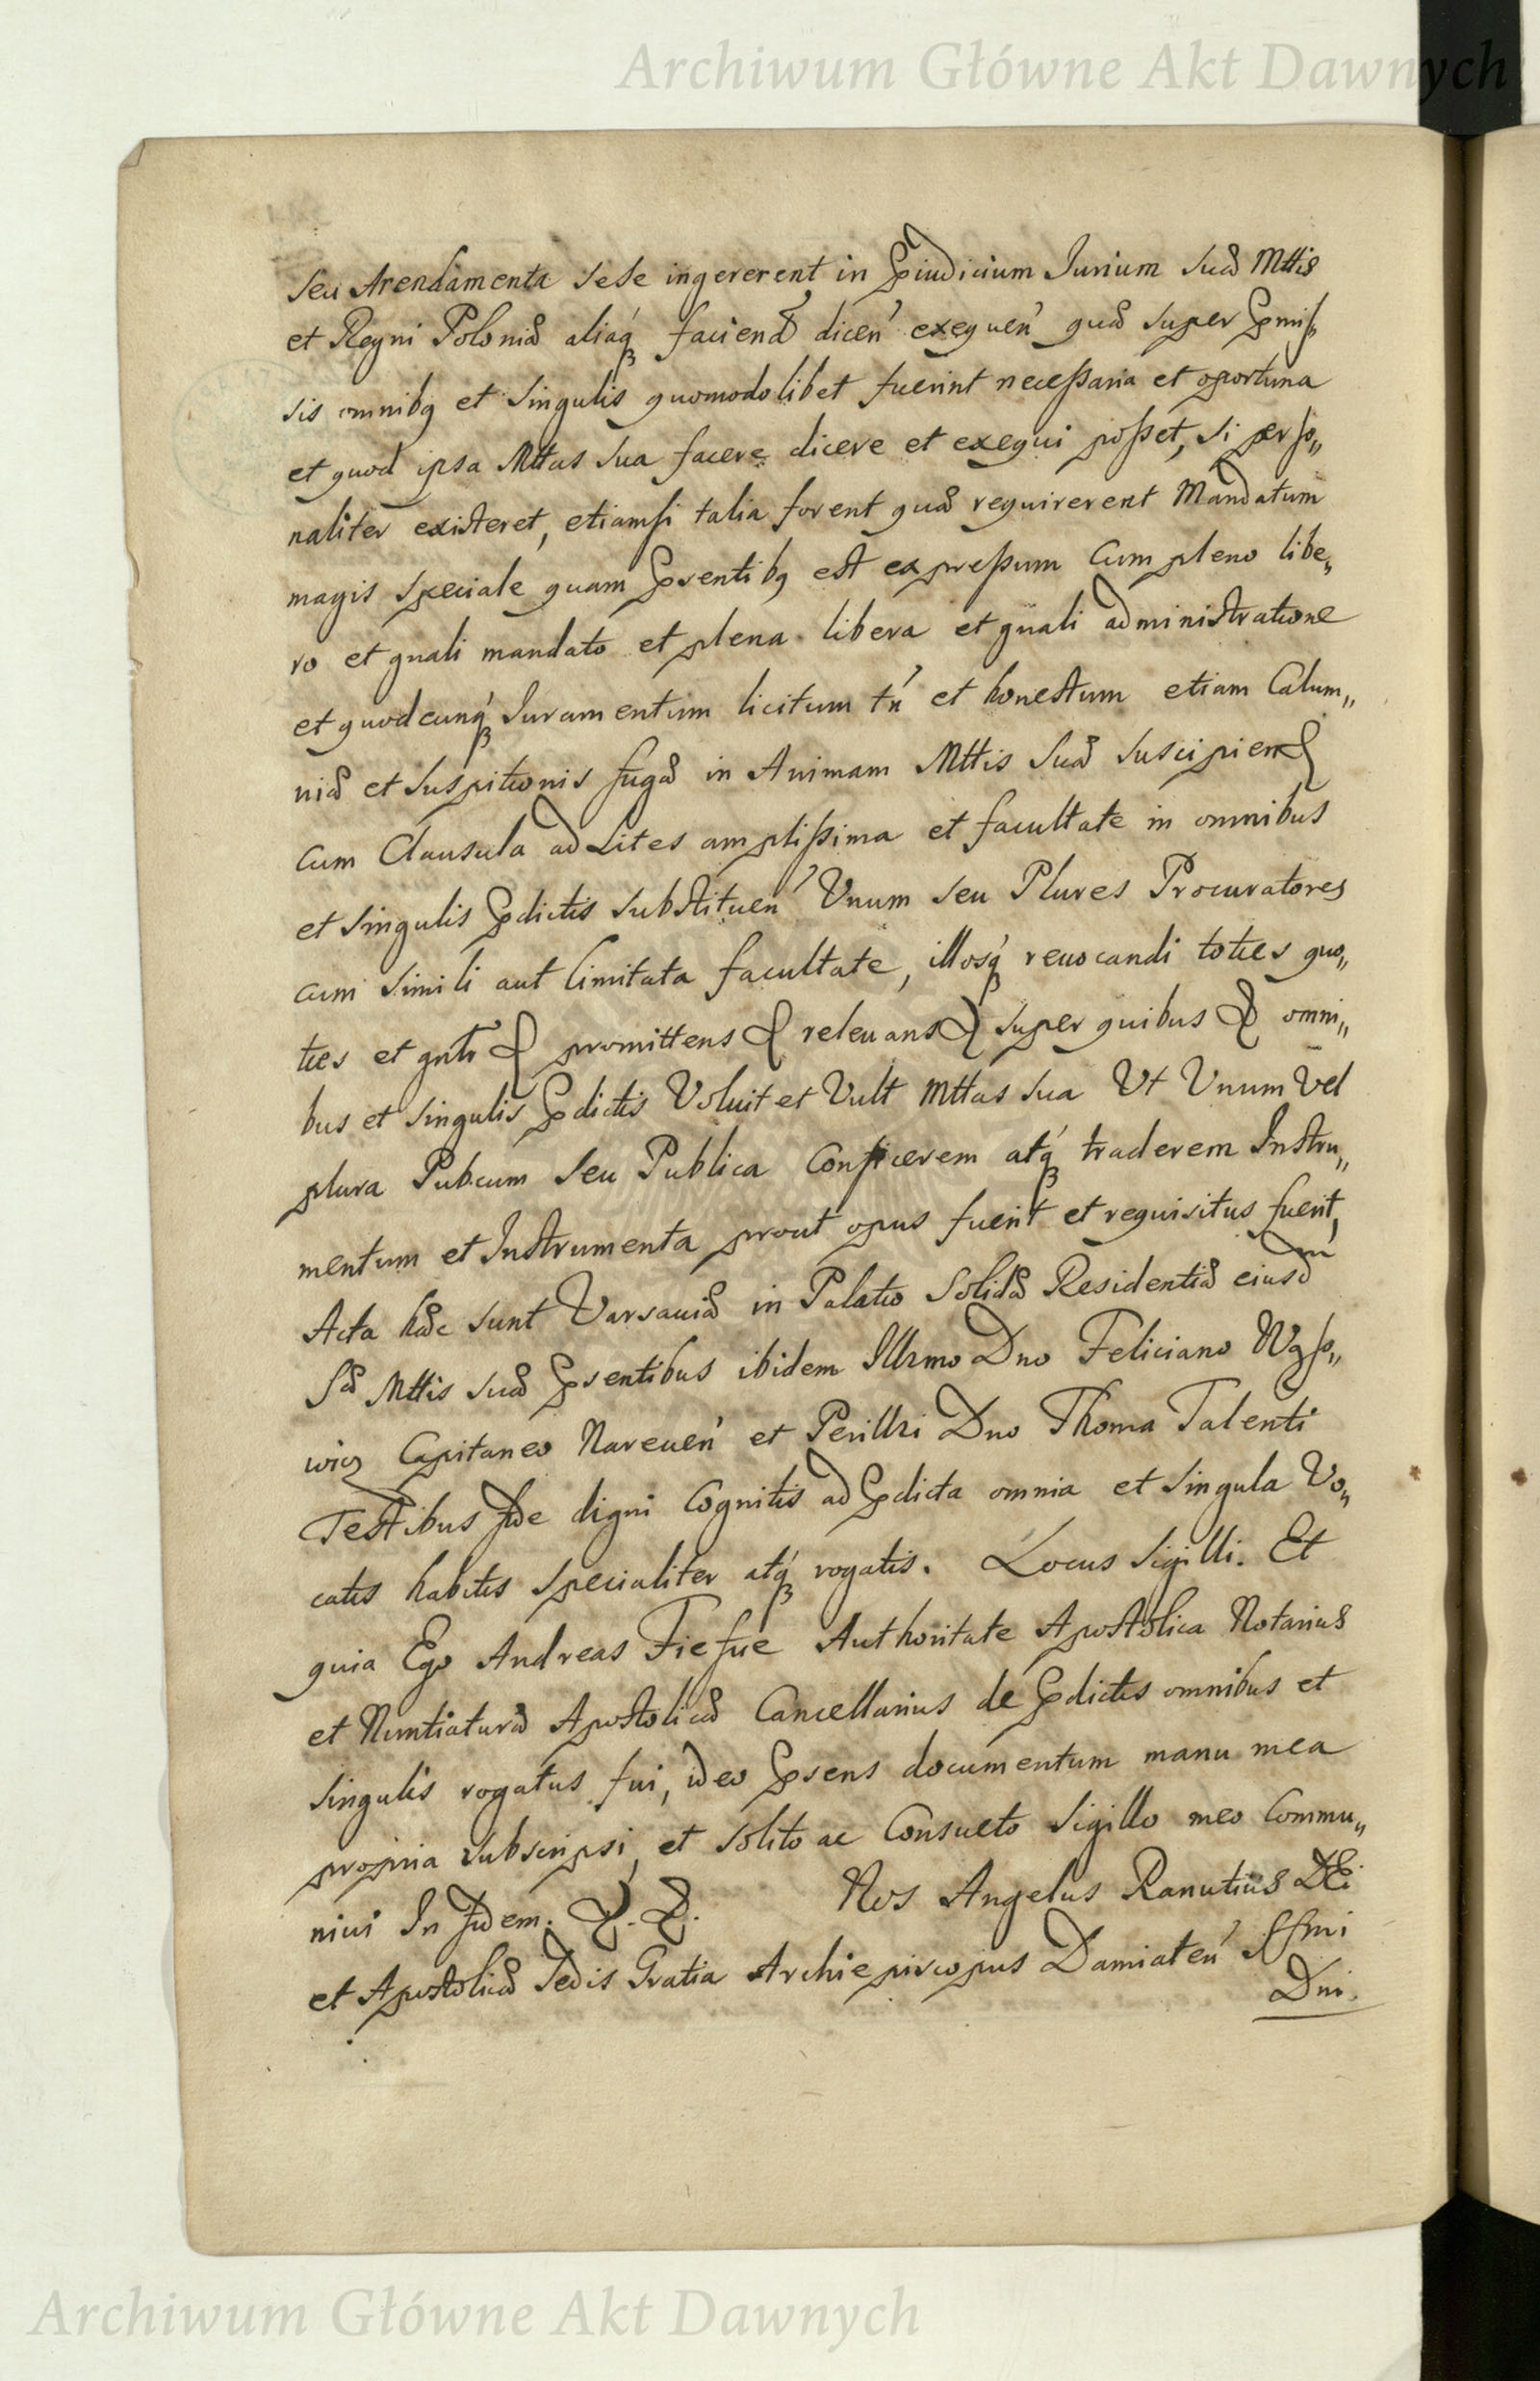 Archiwum Główne Akt Dawnych
seu Arendamenta sese ingererent in Pjudicium Jurium suæ Mttis
et Regni Poloniæ aliaq́ꝫ faciend dicen̄ exequen̄ quæ super Pmis
sis omnibꝫ et singulis quomodolibet fuerint necessaria et oportuna
et quod ipsa Mttas sua facere dicere et exequi posset, si perso„
naliter existeret, etiamsi talia forent quæ requirerent Mandatum
magis speciale quam Psentibꝫ est expressum Cum pleno libe„
ro et gnali mandato et plena libera et gnali administratione
et quodcunq́ꝫ Juramentum licitum tn̄ et honestum etiam Calum„
niæ et suspitionis fugæ in Animam Mttis suæ suscipien
Cum Clausula ad Lites amplissima et facultate in omnibus
et singulis Pdictis substituen̄ Vnum seu Plures Procuratores
cum simili aut limitata facultate, illosq́ꝫ reuocandi toties quo„
ties et gnlr & promittens & releuans & super quibus & omni„
bus et singulis Pdictis Voluit et Vult Mttas sua Vt Vnum Vel
plura Pubcum seu Publica Conficerem atq́ꝫ traderem Instru„
mentum et Instrumenta prout opus fuerit et requisitus fuerit,
Acta hæc sunt Varsauiæ in Palatio Solidæ Residentiæ eiusd
Sæ Mttis suæ Psentibus ibidem Illrmo Dno Feliciano Wąso„
wicz Capitaneo Nareuen̄ et Perillri Dno Thoma Talenti
Testibus fide digni Cognitis ad Pdicta omnia et singula Vo„
catis habitis specialiter atq́ꝫ rogatis. Locus Sigilli. Et
quia Ego Andreas Fiesue Authoritate Apostolica Notarius
et Nuntiaturæ Apostolicæ Cancellarius de Pdictis omnibus et
singulis rogatus fui, ideo Psens documentum manu mea
propria subscripsi, et solito ac Consueto Sigillo meo Commu„
niui In fidem. &. &. Nos Angelus Ranutius DEi
et Apostolicæ Sedis Gratia Archiepiscopus Damiaten̄ SSmi
Dni.
Archiwum Główne Akt Dawnych